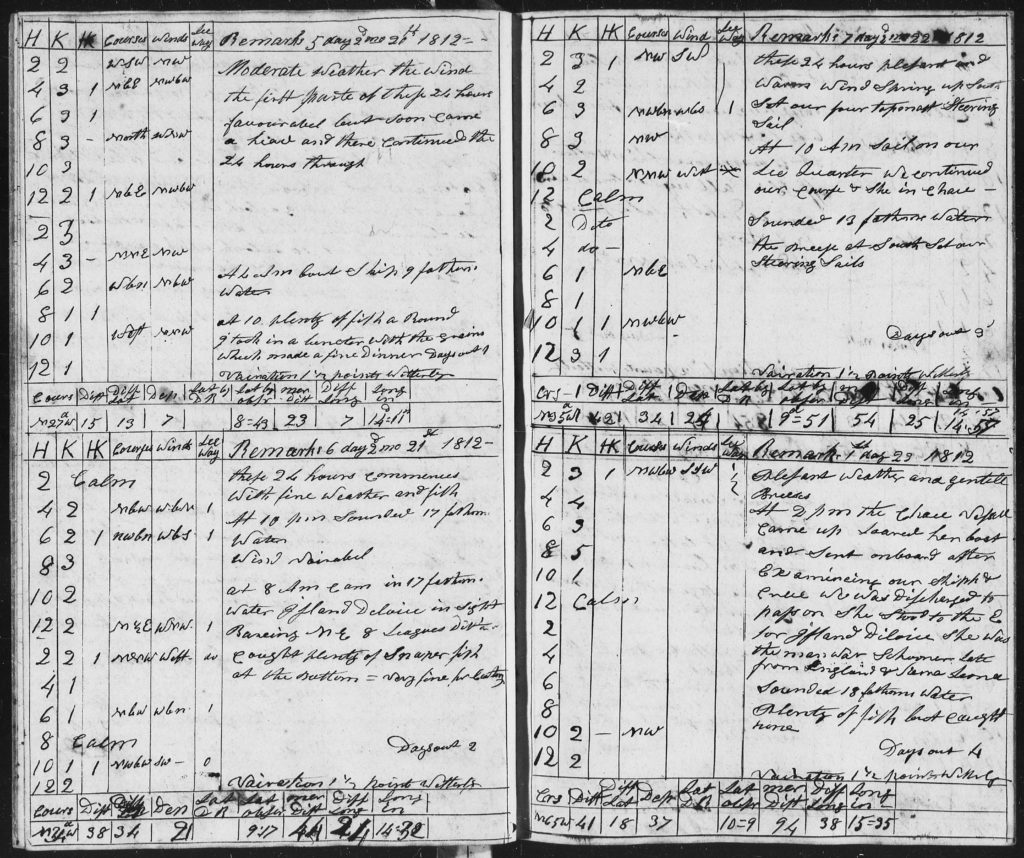 H K HK Courses Winds Lee Way Remarks 5 day 2d mo 20st 1812
2 2 WSW NW Moderate Weather the Wind
4 3 1 NbE NWbW the first parte of these 24 hours
6 3 1 favourabel but soon came
8 3 - North WNW a head and there Continued the
10 3 24 hours through
12 2 1 NbE NWbW
2 3
4 3 - NNE NW
6 2 NbW At 4 Am bout Ship 9 fathoms
Water
8 1 1 at 10 plenty of fish a Round
10 1 1 NNW took in a with the grains
12 1 which made a fine Dinner Days out 1
Variation 1½ points Westerly
Cours Dist Diff Lat Dep Lat by DR Lat by obsr mer Dist Diff long long in
N27W 15 13 7 8=43 23 7
H K HK Courses Winds Lee Way Remarks 6 day 2d mo 21st 1812
2 Calm these 24 hours commences
With fine Weather and fish
4 2 NbW WbN 1 At 10 pm Sounded 17 fathom
6 2 1 NWbN WbS 1 Water
8 3 Wind Vairabel
10 2 at 8 Am Cam in 17 fathom
Water Island Deloice in Sight
12 2 WNW 1 Bareing NE 8 Leagues Dist
2 2 1 West Caught plenty of Snaper fish
4 1 at the Bottom = Very fine for Eating
6 1 NbW WbN 1
8 Calm Days out 2
10 1 1 NWbW SW - 0
12 2 Vairation 1½ point Westerly
Cours Dist Diff Dep Lat DR Lat obser mer Dist Diff long Long in
38 34 21 9=17 21 14=32
H K HK Courses Wind Lee Way Remarks 7 day 2 mo 22 1812
2 3 1 NW SW these 24 hours plesant and
4 2 Warm Wind Spring up
6 3 NWbN WbS 1 Set our four topmast Steering
Sail
8 3 NW At 10 Am Sail on our
10 2 NNW West Lee Quarter We continued
12 Calm our Course & She in Chace -
2 Dito Sounded 13 fathoms Water
4 do - the Breeze at South Set our
Steering Sails
6 1 NbE
8 1
10 1 1 NWbW Days out 3
12 3 1
Vairation 1½ points Westerly
Crs Dist Diff Lat Dep Lat by DR Lat by obsr Diff long in
42 34 24 9=51 54 25 14=57
H K HK Courses Winds Lee Way Remarks 1st day 23 1812
2 3 1 NWbW SSW Plesant Weather and gentell
4 4 Breezes
6 3 At 2 pm the Chace Vessell
came up loared her boat
8 5 and Sent onboard after
10 1 Examineing our Ship &
12 Calm Crue We was Discharged to
2 pass on She Stood to the E
for Island Deloice She was
4 the man war Schooner late
6 from England & Sarra Leona
Sounded 18 fathoms Water
8 Plenty of fish but Caught
10 2 - NW none
12 2 Days out 4
Vairation 1½ points Westerly
Crs Dist Diff Lat Dep Lat DR Lat obsr mer Dist Diff long Long in
N65W 41 18 37 10=9 94 38 15=35